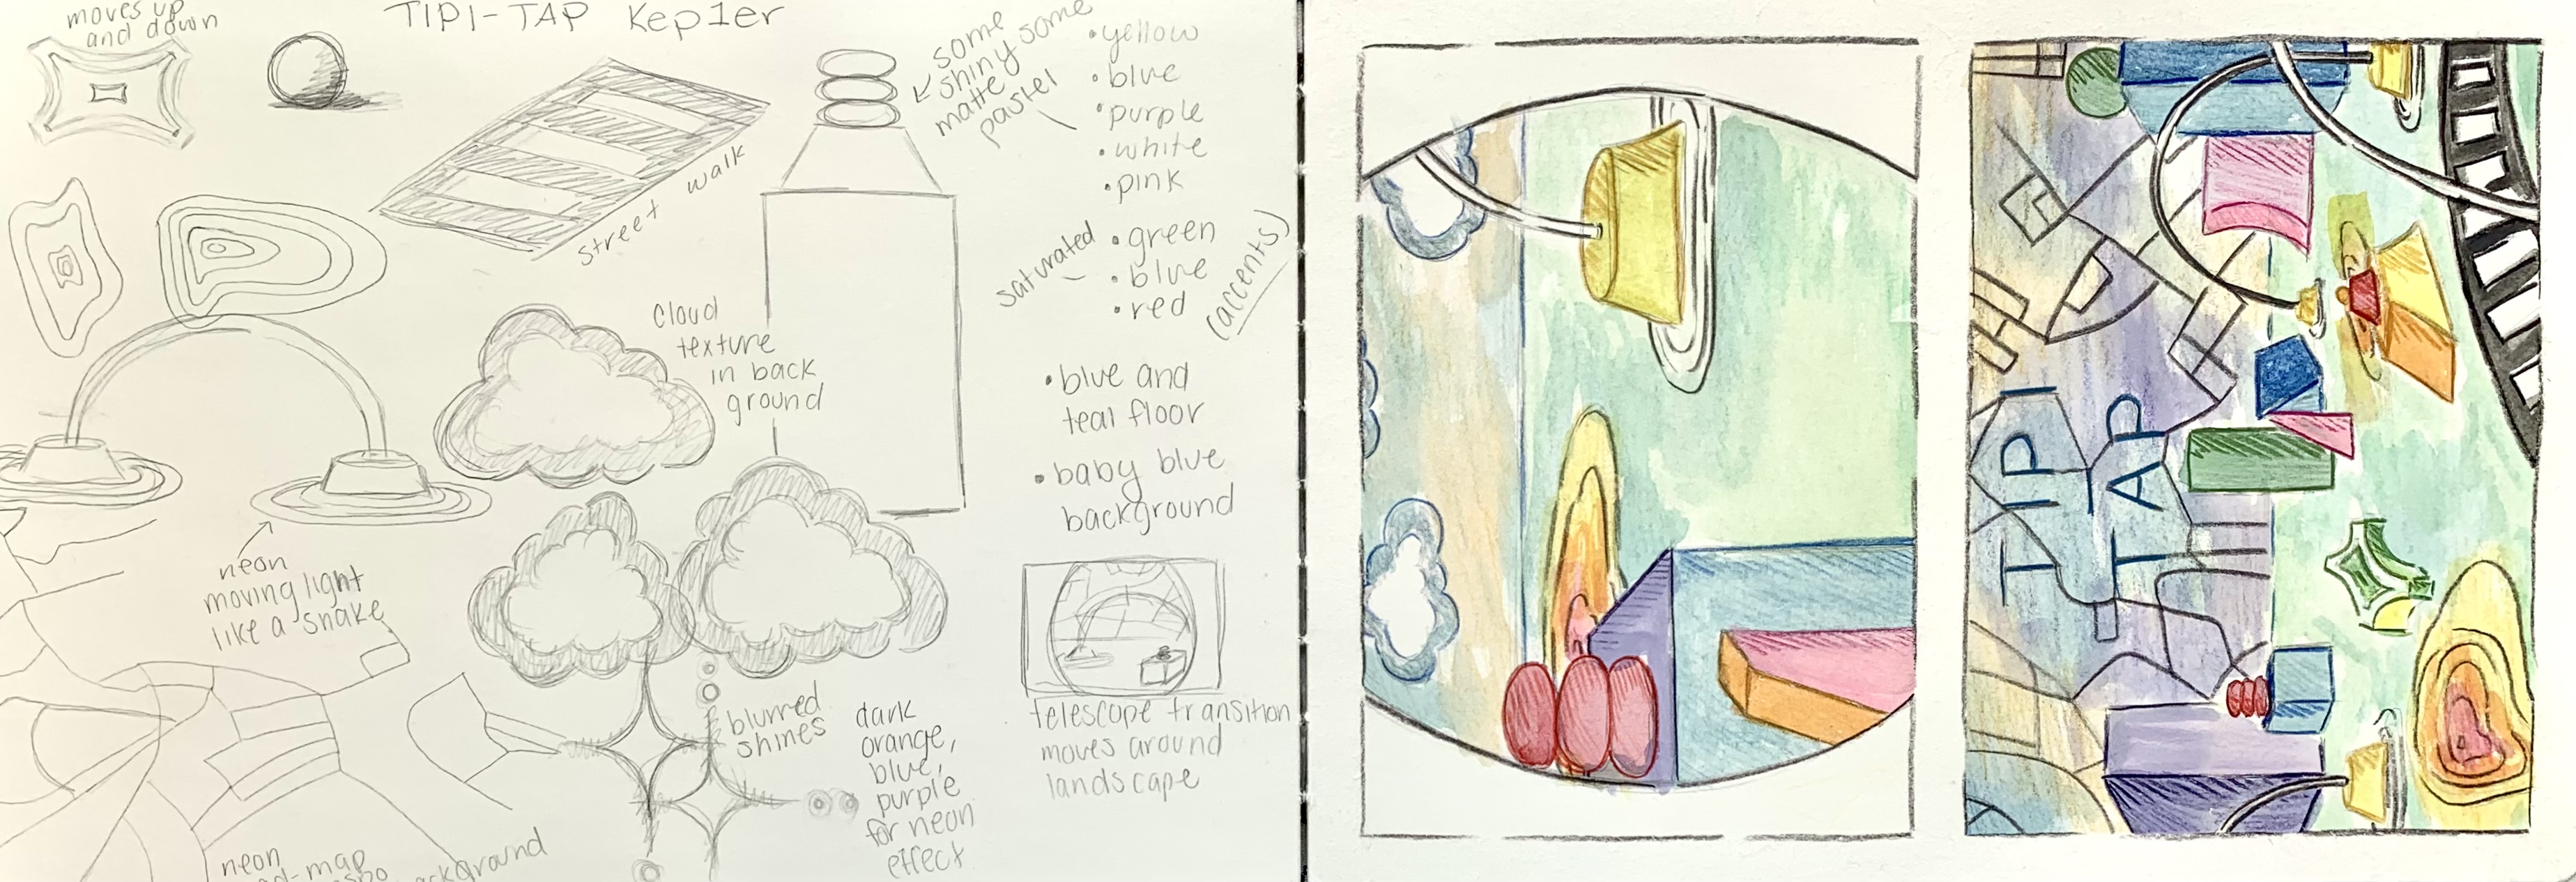 moves up
and down
TIPI-TAP Kep1er
some
shiny some
matte
pastel
• yellow
• blue
• purple
• white
• pink
street walk
saturated
• green
• blue
• red
(accents)
cloud
texture
in back
ground
• blue and
teal floor
• baby blue
background
neon
moving light
like a snake
blurred
shines
dark
orange,
blue,
purple
for neon
effect
telescope transition
moves around
landscape
neon
map
background
TIPI
TAP